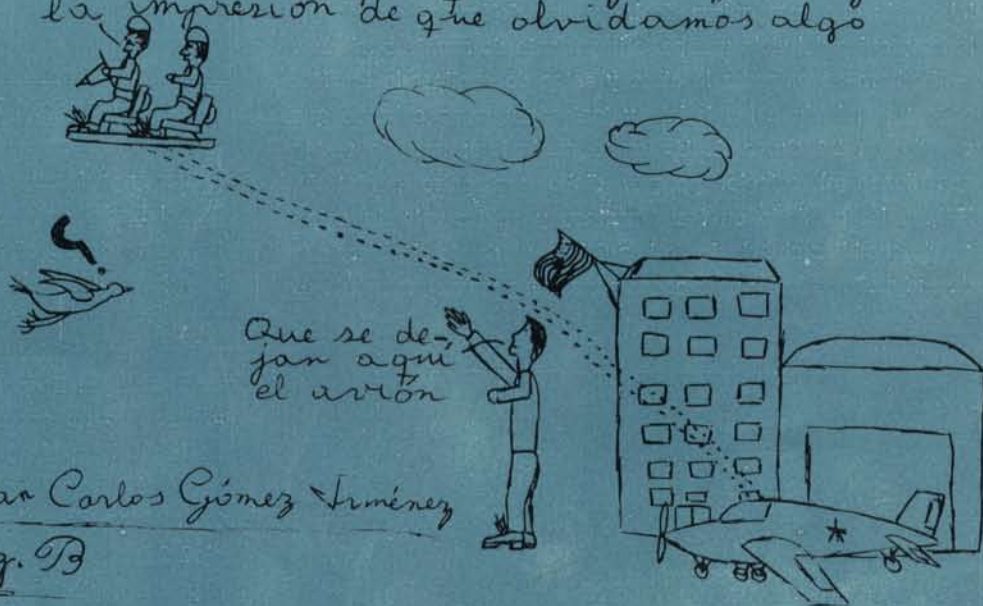 la impresión de que olvidamos algo
?
Que se de-
jan aquí
el avión
Carlos Gómez Jiménez
B